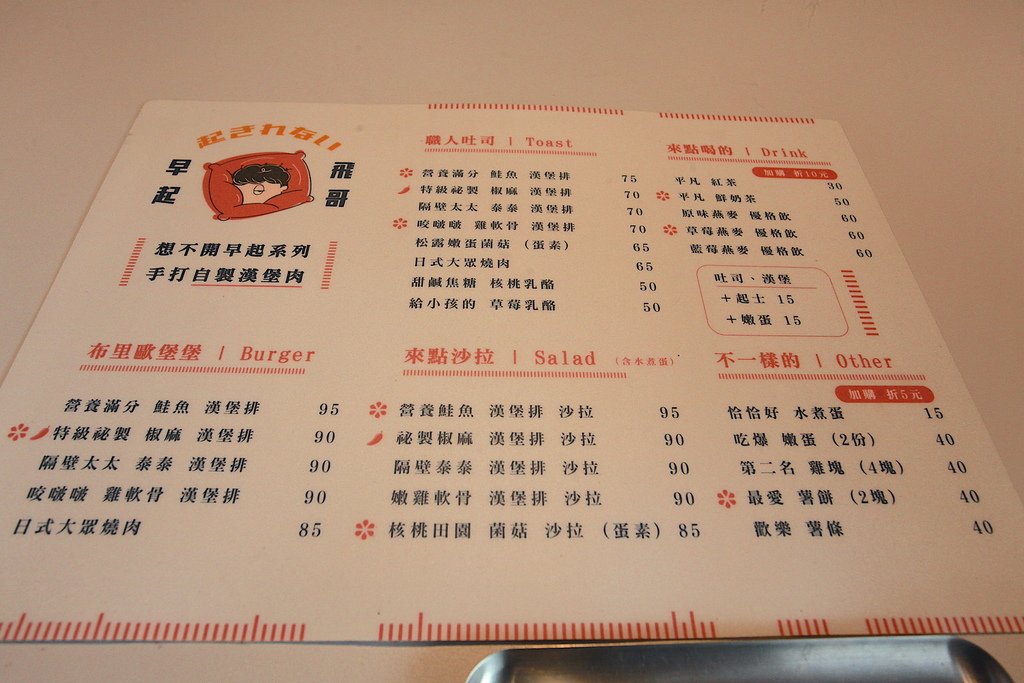 起きれない
早起 飛哥
想不開早起系列
手打自製漢堡肉
職人吐司 | Toast
營養滿分 鮭魚 漢堡排 75
特級祕製 椒麻 漢堡排 70
隔壁太太 泰泰 漢堡排 70
咬啵啵 雞軟骨 漢堡排 70
松露嫩蛋菌菇 (蛋素) 65
日式大眾燒肉 65
甜鹹焦糖 核桃乳酪 50
給小孩的 草莓乳酪 50
來點喝的 | Drink
加購 折10元
平凡 紅茶 30
平凡 鮮奶茶 50
原味燕麥 優格飲 60
草莓燕麥 優格飲 60
藍莓燕麥 優格飲 60
吐司、漢堡
+起士 15
+嫩蛋 15
布里歐堡堡 | Burger
營養滿分 鮭魚 漢堡排 95
特級祕製 椒麻 漢堡排 90
隔壁太太 泰泰 漢堡排 90
咬啵啵 雞軟骨 漢堡排 90
日式大眾燒肉 85
來點沙拉 | Salad (含水煮蛋)
營養鮭魚 漢堡排 沙拉 95
祕製椒麻 漢堡排 沙拉 90
隔壁泰泰 漢堡排 沙拉 90
嫩雞軟骨 漢堡排 沙拉 90
核桃田園 菌菇 沙拉 (蛋素) 85
不一樣的 | Other
加購 折5元
恰恰好 水煮蛋 15
吃爆 嫩蛋 (2份) 40
第二名 雞塊 (4塊) 40
最愛 薯餅 (2塊) 40
歡樂 薯條 40